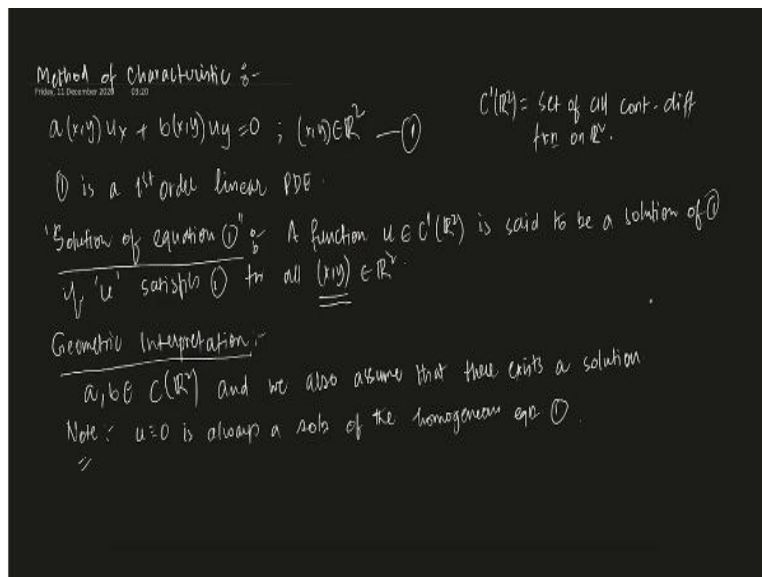 Method of Characteristic :-
Friday, 11 December 2020 03:20
a(x,y) ux + b(x,y) uy = 0 ; (x,y) ∈ ℝ² — ①
C¹(ℝ²) = set of all cont. diff
fxn on ℝ².
① is a 1st order linear PDE.
"Solution of equation ①" : A function u ∈ C¹(ℝ²) is said to be a solution of ①
if 'u' satisfies ① for all (x,y) ∈ ℝ².
Geometric Interpretation :-
a, b ∈ C(ℝ²) and we also assume that there exists a solution
Note : u ≡ 0 is always a soln of the homogeneous eqn ①.